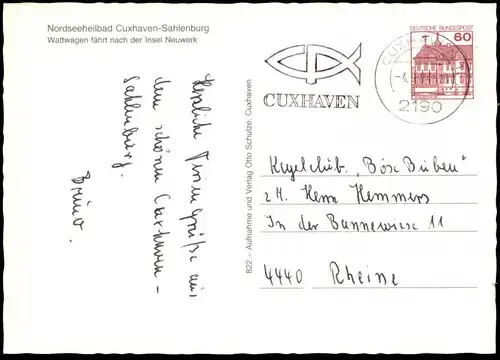 Nordseeheilbad Cuxhaven-Sahlenburg
Wattwagen fährt nach der Insel Neuwerk
Herzliche Feriengrüße aus
dem schönen Cuxhaven-
Sahlenburg.
Bruno.
822 – Aufnahme und Verlag Otto Schulze, Cuxhaven
CUXHAVEN
CUXHAVEN
2190
DEUTSCHE BUNDESPOST
60
Kegelclub "Böse Buben"
z.H. Herrn Hemmers
In der Bannewiese 11
4440 Rheine